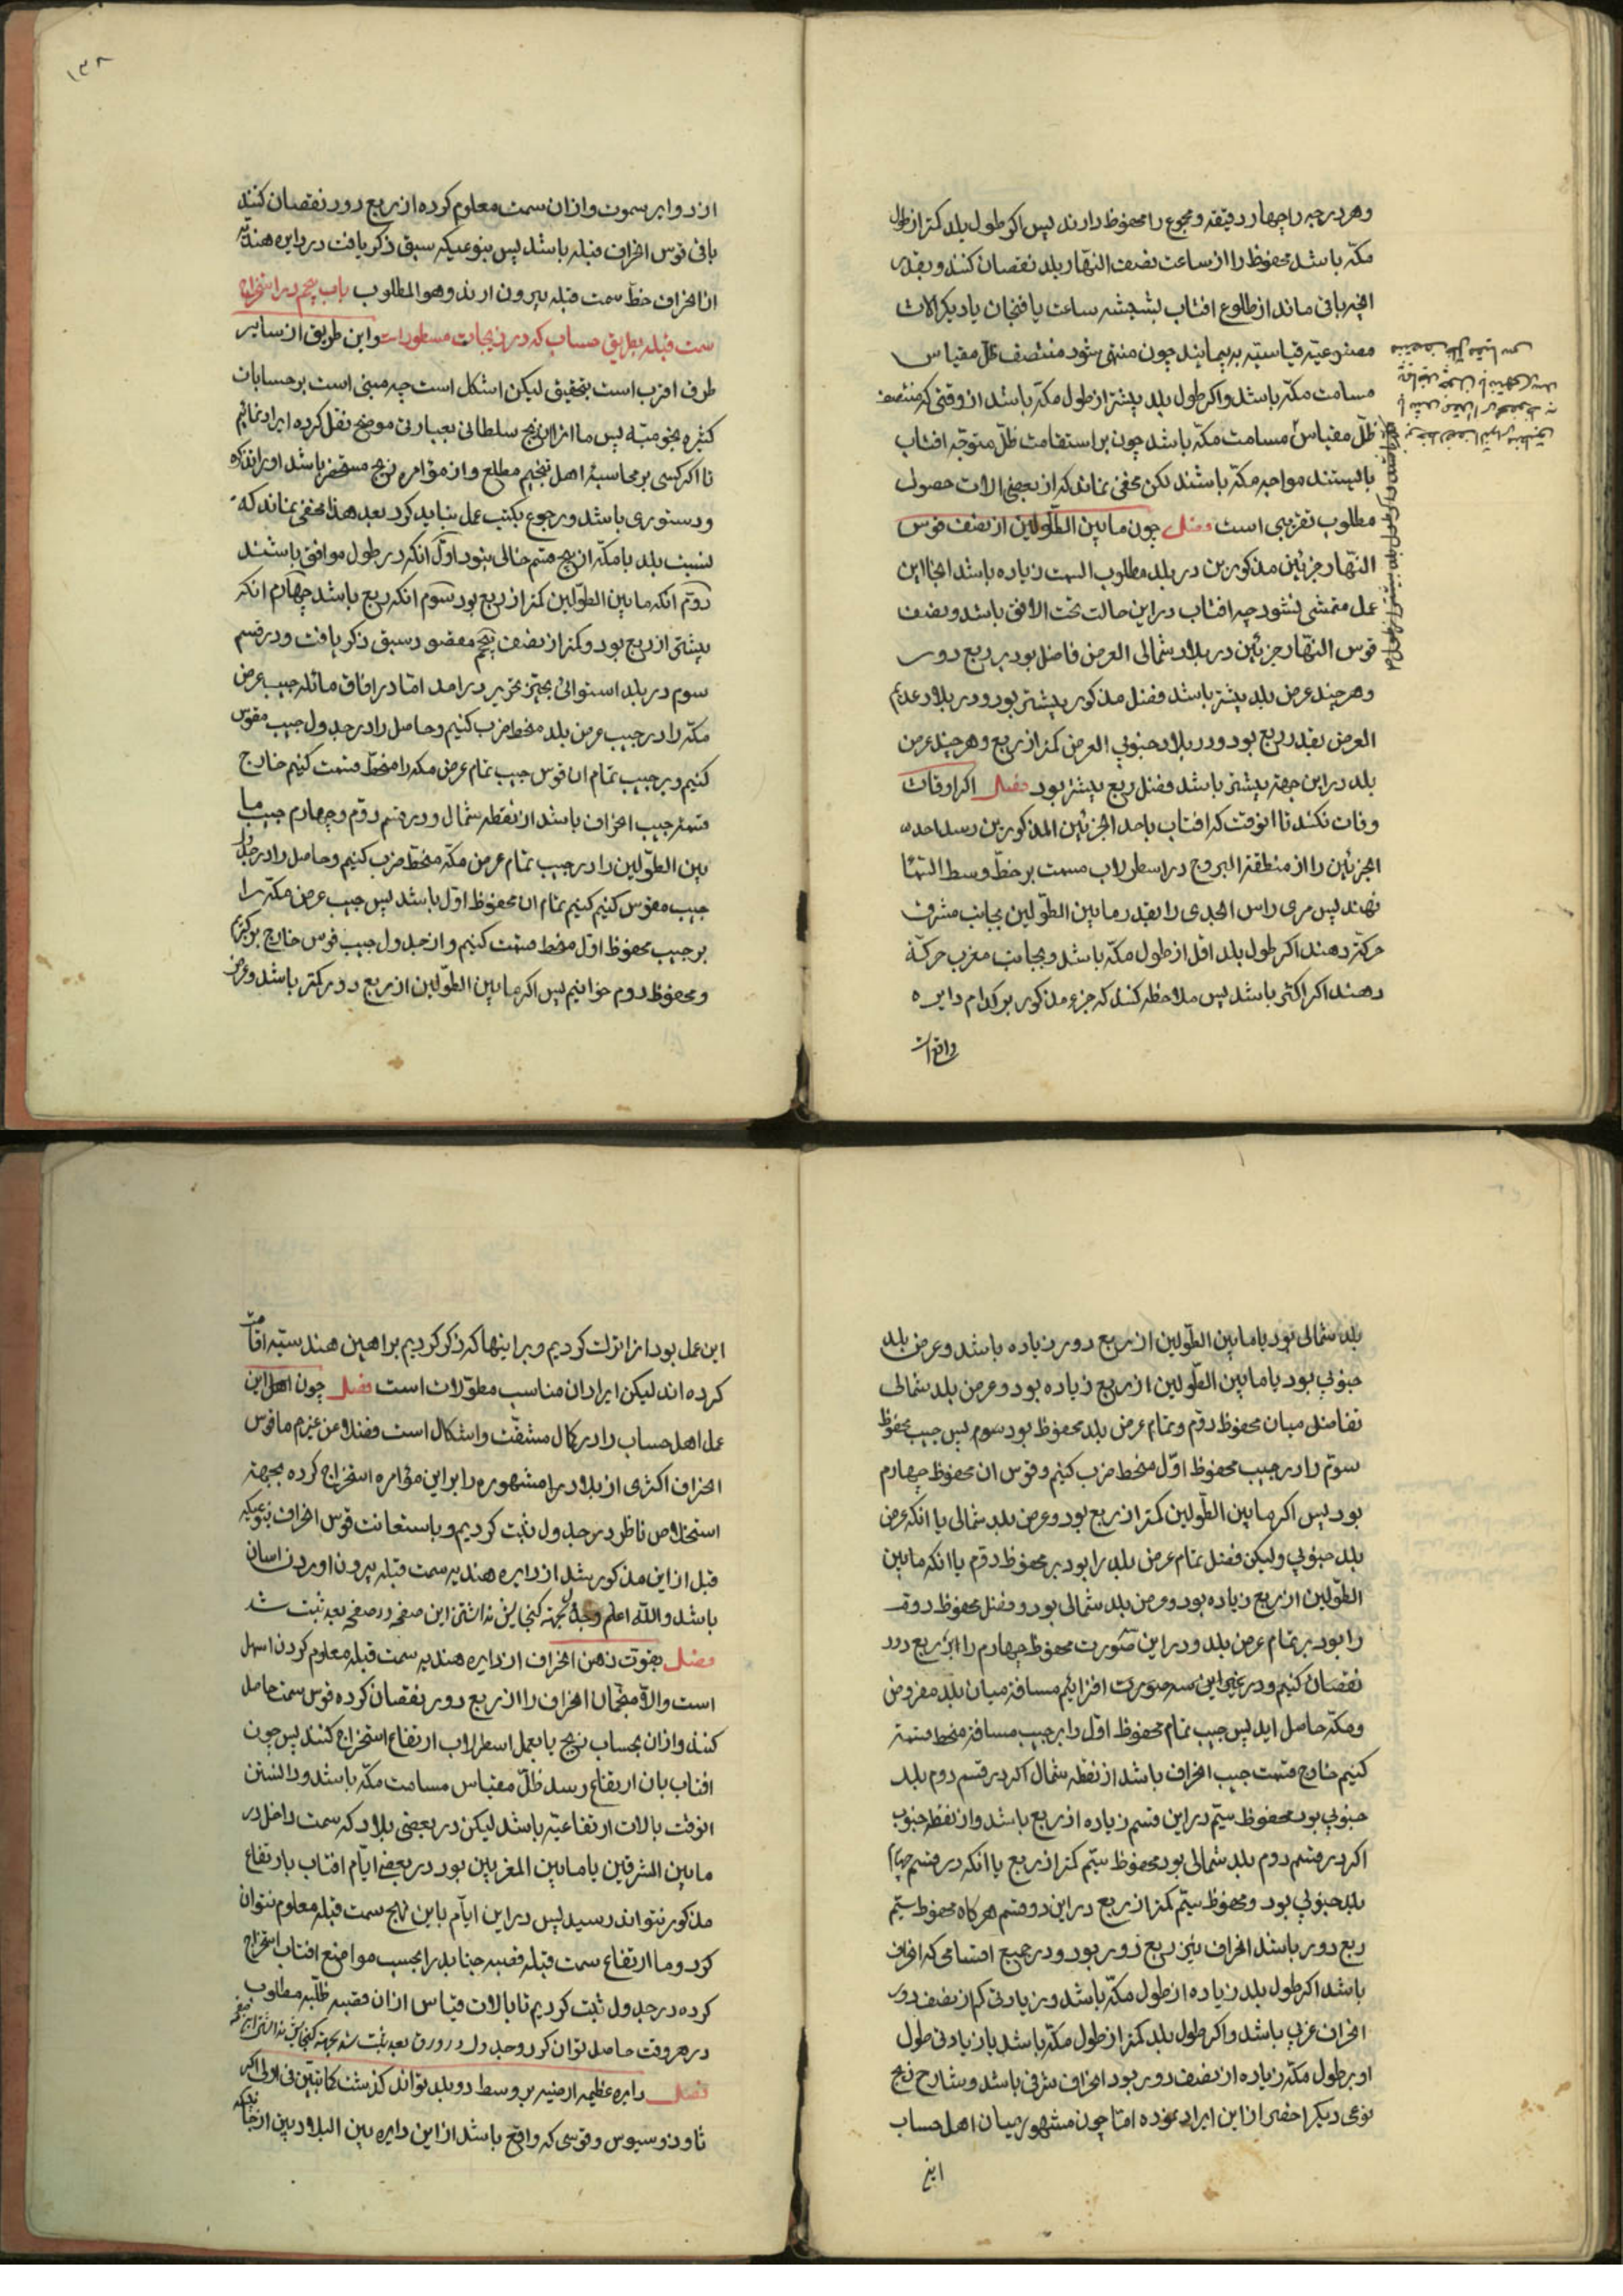 وهر درجه را چهار دقیقه ومجموع را محفوظ دارند پس اکر طول بلد کمتر از طول
مکّه باشد محفوظ را از ساعت نصف النهار بلد نقصان کنند وبقدر
انچه باقی ماند از طلوع افتاب بشیشه ساعت یا فنجان یا دیکر الات
مصنوعیّه قیاسیّه بپیمایند چون منتهی شود منتصف ظلّ مقیاس
مسامت مکّه باشد واکر طول بلد بیشتر از طول مکّه باشد از وقتی که منتصف
ظلّ مقیاس مسامت مکّه باشد چون بر استقامت ظلّ متوجّه افتاب
بایستند مواجه مکّه باشند لکن مخفی نماند که از بعضی الات حصول
مطلوب تقریبی است فصل چون مابین الطّولین از نصف قوس
النّهار جزئین مذکورین در بلد مطلوب السمت زیاده باشد انجا این
عمل متمشی نشود چه افتاب در این حالت تحت الافق باشد ونصف
قوس النّهار جزئین در بلاد شمالی العرض فاضل بود بر ربع دور
وهر چند عرض بلد بیشتر باشد فضل مذکور بیشتر بود ودر بلاد عدیم
العرض بقدر ربع بود ودر بلاد جنوبی العرض کمتر از ربع وهر چند عرض
بلد در این جهة بیشتر باشد فضل ربع بیشتر بود فصل اکر اوقات
وفات نکند تا انوقت که افتاب باحد الجزئین المذکورین رسد احد
الجزئین را از منطقة البروج در اسطرلاب مسمت بر خطّ وسط السّما
نهند پس مری راس الجدی را بقدر مابین الطّولین بجانب مشرق
حرکة دهند اکر طول بلد اقل از طول مکّه باشد وبجانب مغرب حرکة
دهند اکر اکثر باشد پس ملاحظه کنند که جزء مذکور بر کدام دایره
واقع است
۱۳۸
از دوایر سموت واز ان سمت معلوم کرده از ربع دور نقصان کنند
باقی قوس انحراف قبله باشد پس بنوعیکه سبق ذکر یافت در دایره هندیّه
از انحراف خطّ سمت قبله بیرون ارند وهو المطلوب باب پنجم در استخراج
سمت قبله بطریق حساب که در زیجات مسطور است واین طریق از سایر
طرق اقرب است بتحقیق لیکن اشکل است چه مبنی است بر حسابات
کثیره نجومیّه پس ما انرا از زیج سلطانی بعبارتی موضح نقل کرده ایراد نمائیم
تا اکر کسی بر محاسبۀ اهل تنجیم مطلع واز مؤامره زیج مستحضر باشد او را تذکره
ودستوری باشد ورجوع بکتب عمل نباید کرد بعد هذا مخفی نماند که
نسبت بلد با مکّه از پنج قسم خالی نبود اوّل انکه در طول موافق باشند
دوّم انکه مابین الطّولین کمتر از ربع بود سوّم انکه ربع باشد چهارم انکه
بیشتر از ربع بود وکمتر از نصف پنجم مقصور سبق ذکر یافت ودر قسم
سوم در بلد استوائی بحیّز تحریر درامد امّا در افاق مائله جیب عرض
مکّه را در جیب عرض بلد منحط ضرب کنیم وحاصل را در جدول جیب مقوّس
کنیم وبر جیب تمام ان قوس جیب تمام عرض مکه را منحطّ قسمت کنیم خارج
قسمة جیب انحراف باشد از نقطه شمال ودر قسم دوّم وچهارم جیب ما
بین الطّولین را در جیب تمام عرض مکّه منحطّ ضرب کنیم وحاصل را در جدول
جیب مقوس کنیم کنیم تمام ان محفوظ اوّل باشد پس جیب عرض مکّه را
بر جیب محفوظ اوّل منحط قسمت کنیم واز جدول جیب قوس خارج بر کیریم
ومحفوظ دوم خوانیم پس اکر مابین الطّولین از ربع دور کمتر باشد وعرض
بلد شمالی بود یا مابین الطّولین از ربع دور زیاده باشد وعرض بلد
جنوبی بود یا مابین الطّولین از ربع زیاده بود وعرض بلد شمالی
تفاضل میان محفوظ دوّم وتمام عرض بلد محفوظ بود سوم پس جیب محفوظ
سوّم را در جیب محفوظ اوّل منحط ضرب کنیم وقوس ان محفوظ چهارم
بود پس اکر مابین الطّولین کمتر از ربع بود وعرض بلد شمالی یا انکه عرض
بلد جنوبی ولیکن فضل تمام عرض بلد را بود بر محفوظ دوّم یا انکه مابین
الطّولین از ربع زیاده بود وعرض بلد شمالی بود وفضل محفوظ دوّم
را بود بر تمام عرض بلد ودر این صورت محفوظ چهارم را از ربع دور
نقصان کنیم ودر غیر این سه صورت افزائیم مسافة میان بلد مفروض
ومکّه حاصل اید پس جیب تمام محفوظ اوّل را بر جیب مسافة منحط قسمة
کنیم خارج قسمت جیب انحراف باشد از نقطه شمال اکر در قسم دوم بلد
جنوبی بود محفوظ سیّم در این قسم زیاده از ربع باشد واز نقطه جنوب
اکر در قسم دوم بلد شمالی بود محفوظ سیّم کمتر از ربع یا انکه در قسم چهارم
بلد جنوبی بود ومحفوظ سیّم کمتر از ربع در این دو قسم هر کاه محفوظ سیّم
ربع دور باشد انحراف نیز ربع دور بود ودر جمیع اقسامی که انحراف
باشد اکر طول بلد زیاده از طول مکّه باشد وزیادتی کم از نصف دور
انحراف غربی باشد واکر طول بلد کمتر از طول مکّه باشد یا زیادتی طول
او بر طول مکّه زیاده از نصف دور بود انحراف شرقی باشد وشارح زیج
نوعی دیکر اخصر از این ایراد نموده امّا چون مشهور میان اهل حساب
این
این عمل بود انرا ترک کردیم وبر اینها که ذکر کردیم براهین هندسیّه اقامت
کرده اند لیکن ایراد ان مناسب مطوّلات است فصل چون اهل این
عمل اهل حساب را در کمال مشقّت واشکال است فضلا عن غیرهم ما قوس
انحراف اکثری از بلاد مشهوره را بر این مؤامره استخراج کرده بجهة
استخلاص ناظر در جدول ثبت کردیم وباستعانت قوس انحراف بنوعیکه
قبل از این مذکور شد از دایره هندیه سمت قبله بیرون اوردن اسان
باشد والله اعلم وجدول بجهة کنجایش نداشتن این صفحه در صفحه بعد ثبت شد
فصل بقوت ذهن انحراف از دایره هندیه سمت قبله معلوم کردن اسهل
است والا منجّمان انحراف را از ربع دور نقصان کرده قوس سمت حاصل
کنند واز ان بحساب زیج یا بعمل اسطرلاب ارتفاع استخراج کنند پس چون
افتاب بان ارتفاع رسد ظلّ مقیاس مسامت مکّه باشد ودانستن
انوقت بالات ارتفاعیّه باشد لیکن در بعضی بلاد که سمت داخل در
مابین المشرقین یا مابین المغربین بود در بعضی ایّام افتاب بارتفاع
مذکور نتواند رسید پس در این ایّام باین نهج سمت قبله معلوم نتوان
کرد وما ارتفاع سمت قبله قصبه جنابد را بحسب مواضع افتاب استخراج
کرده در جدول ثبت کردیم تا بالات قیاس از ان قصبه طلبه مطلوب
در هر وقت حاصل توان کرد وجدول در ورق بعد ثبت شد بجهة کنجایش نداشتن این صفحه
فصل دایره عظیمه ارضیه بر وسط دو بلد تواند کذشت
تاوذوسیوس وقوسی که واقع باشد از این دایره بین البلادین از جانب